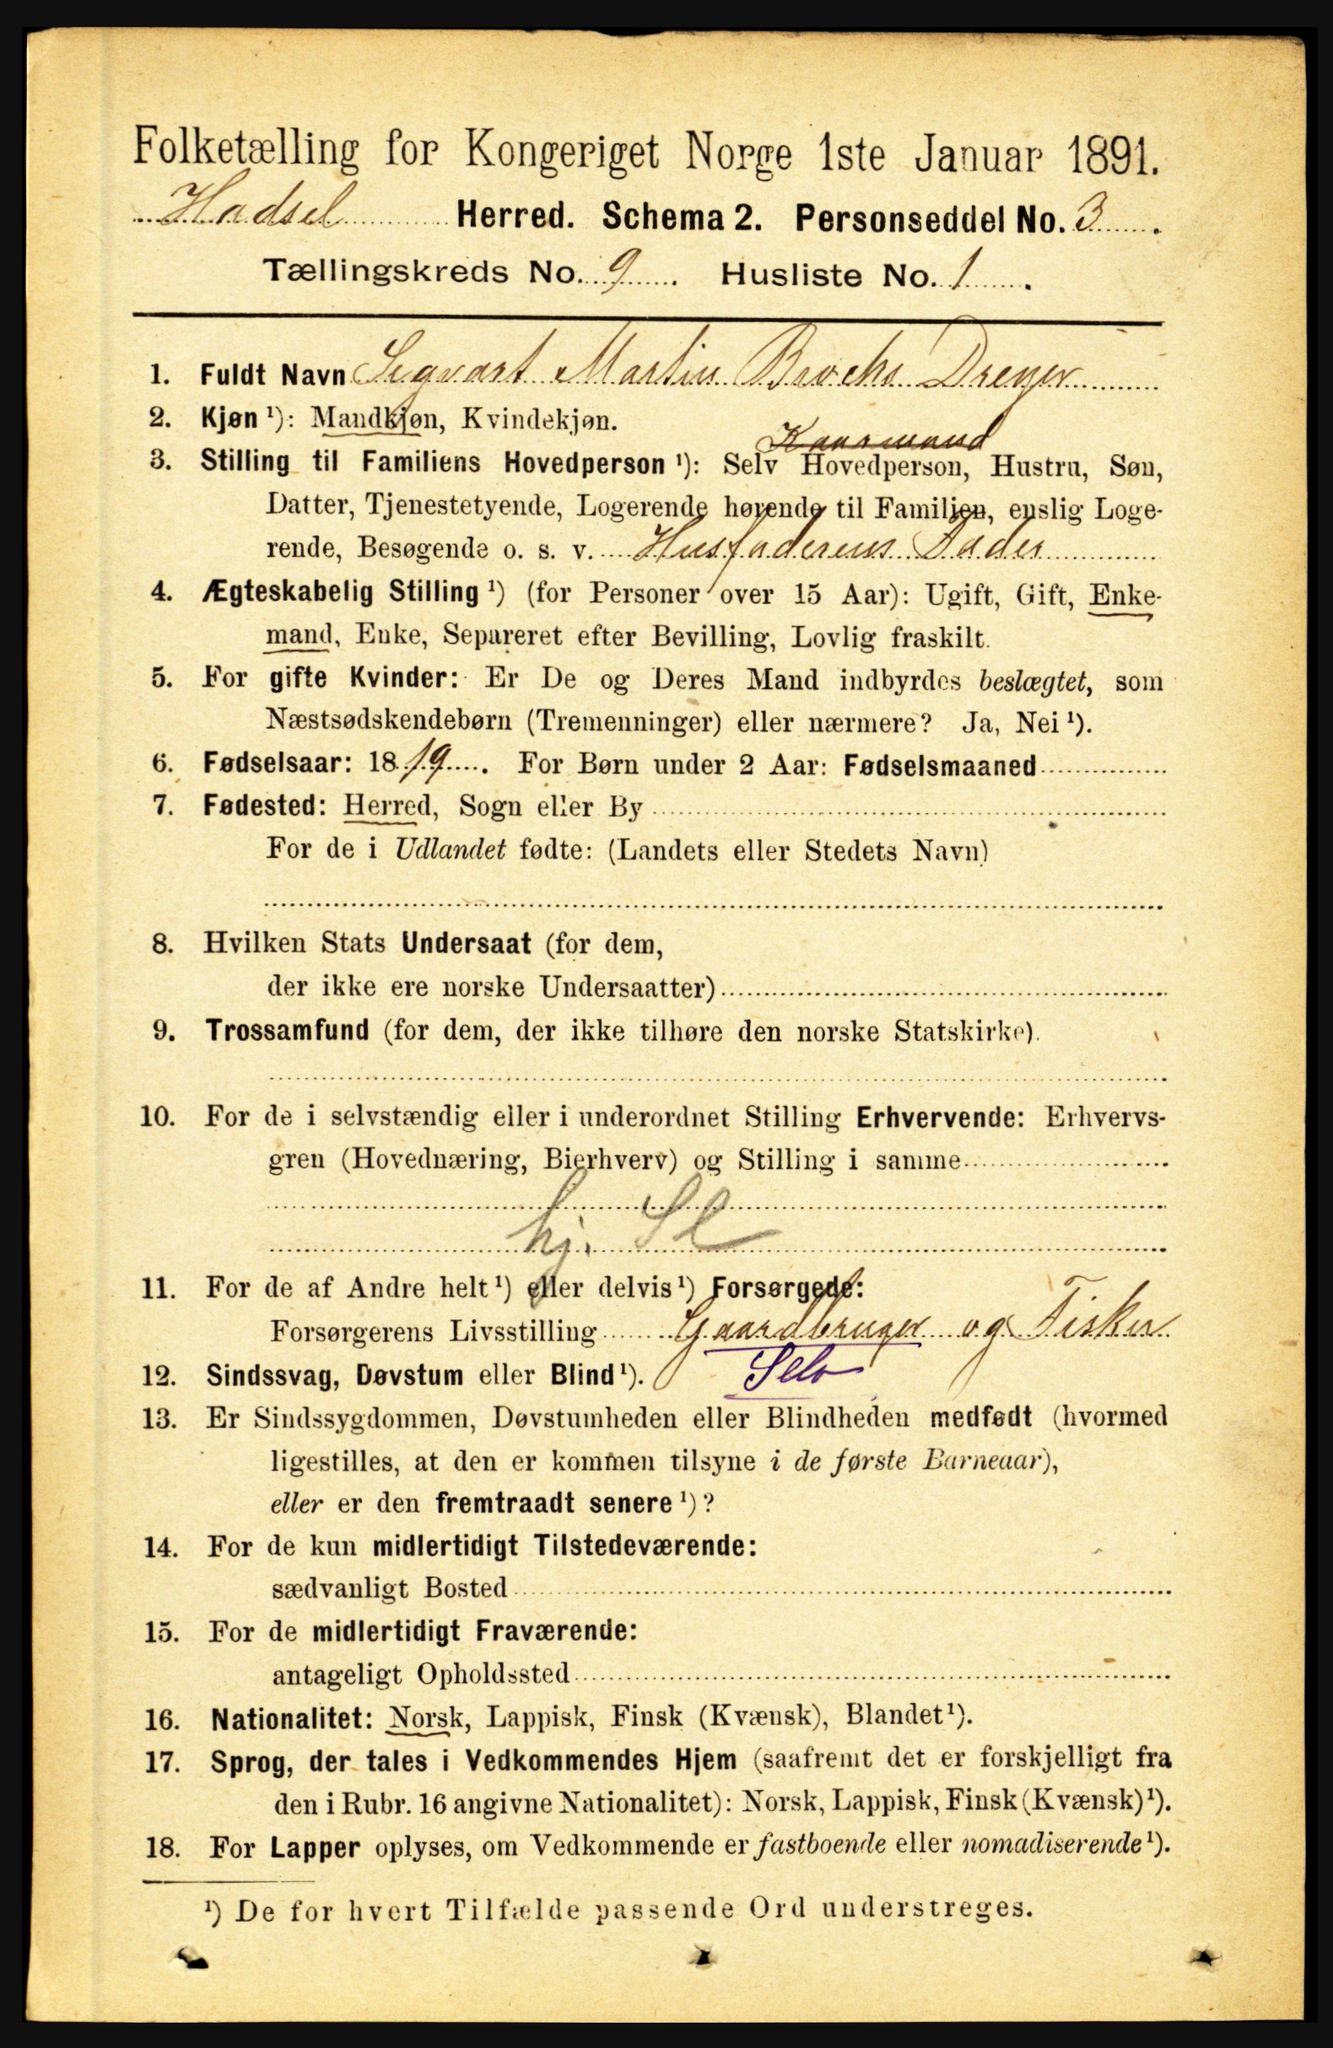 Folketælling for Kongeriget Norge 1ste Januar 1891.
Hadsel Herred. Schema 2. Personseddel No. 3.
Tællingskreds No. 9. Husliste No. 1.
1. Fuldt Navn Sigvart Martin Brochs Dreyer
2. Kjøn¹): Mandkjøn, Kvindekjøn.
Kaarmand
3. Stilling til Familiens Hovedperson¹): Selv Hovedperson, Hustru, Søn,
Datter, Tjenestetyende, Logerende hørende til Familien, enslig Loge-
rende, Besøgende o. s. v. Husfaderens Fader
4. Ægteskabelig Stilling¹) (for Personer over 15 Aar): Ugift, Gift, Enke-
mand, Enke, Separeret efter Bevilling, Lovlig fraskilt.
5. For gifte Kvinder: Er De og Deres Mand indbyrdes beslægtet, som
Næstsødskendebørn (Tremenninger) eller nærmere? Ja, Nei¹).
6. Fødselsaar: 1819. For Børn under 2 Aar: Fødselsmaaned
7. Fødested: Herred, Sogn eller By
For de i Udlandet fødte: (Landets eller Stedets Navn)
8. Hvilken Stats Undersaat (for dem,
der ikke ere norske Undersaatter)
9. Trossamfund (for dem, der ikke tilhøre den norske Statskirke).
10. For de i selvstændig eller i underordnet Stilling Erhvervende: Erhvervs-
gren (Hovednæring, Bierhverv) og Stilling i samme
hj. Sl
11. For de af Andre helt¹) eller delvis¹) Forsørgede:
Forsørgerens Livsstilling Gaardbruger og Fisker
12. Sindssvag, Døvstum eller Blind¹). Selv
13. Er Sindssygdommen, Døvstumheden eller Blindheden medfødt (hvormed
ligestilles, at den er kommen tilsyne i de første Barneaar),
eller er den fremtraadt senere¹)?
14. For de kun midlertidigt Tilstedeværende:
sædvanligt Bosted
15. For de midlertidigt Fraværende:
antageligt Opholdssted
16. Nationalitet: Norsk, Lappisk, Finsk (Kvænsk), Blandet¹).
17. Sprog, der tales i Vedkommendes Hjem (saafremt det er forskjelligt fra
den i Rubr. 16 angivne Nationalitet): Norsk, Lappisk, Finsk (Kvænsk)¹).
18. For Lapper oplyses, om Vedkommende er fastboende eller nomadiserende¹).
¹) De for hvert Tilfælde passende Ord understreges.